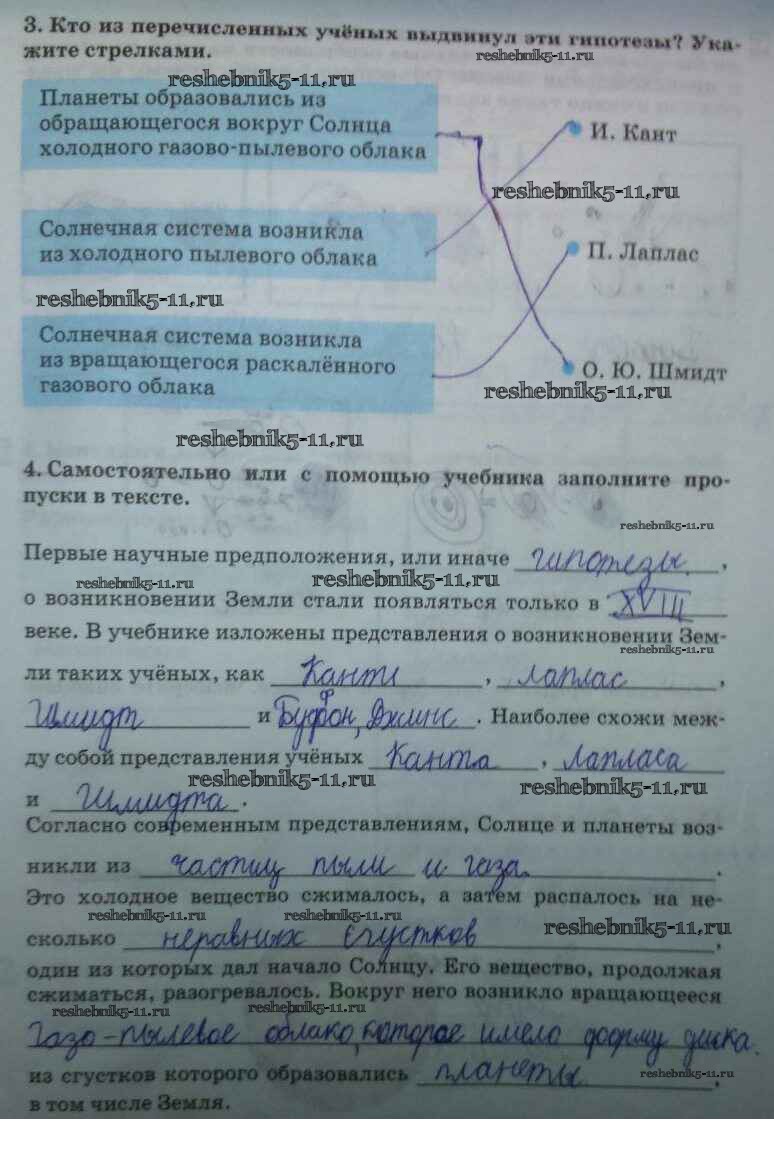 3. Кто из перечисленных учёных выдвинул эти гипотезы? Ука-
reshebnik5-11.ru
жите стрелками.
reshebnik5-11.ru
Планеты образовались из
обращающегося вокруг Солнца
холодного газово-пылевого облака
И. Кант
reshebnik5-11.ru
Солнечная система возникла
из холодного пылевого облака
П. Лаплас
reshebnik5-11.ru
Солнечная система возникла
из вращающегося раскалённого
газового облака
О. Ю. Шмидт
reshebnik5-11.ru
reshebnik5-11.ru
4. Самостоятельно или с помощью учебника заполните про-
пуски в тексте.
reshebnik5-11.ru
Первые научные предположения, или иначе гипотезы,
reshebnik5-11.ru reshebnik5-11.ru
о возникновении Земли стали появляться только в XVIII
веке. В учебнике изложены представления о возникновении Зем-
reshebnik5-11.ru
ли таких учёных, как Кант, лаплас,
Шмидт и Бюффон, Джинс. Наиболее схожи меж-
ду собой представления учёных Канта, лапласа
reshebnik5-11.ru reshebnik5-11.ru
и Шмидта.
Согласно современным представлениям, Солнце и планеты воз-
никли из частиц пыли и газа.
Это холодное вещество сжималось, а затем распалось на не-
reshebnik5-11.ru reshebnik5-11.ru reshebnik5-11.ru
сколько неравных сгустков,
один из которых дал начало Солнцу. Его вещество, продолжая
сжиматься, разогревалось. Вокруг него возникло вращающееся
reshebnik5-11.ru reshebnik5-11.ru
газо-пылевое облако, которое имело форму диска.
из сгустков которого образовались планеты,
reshebnik5-11.ru
в том числе Земля.